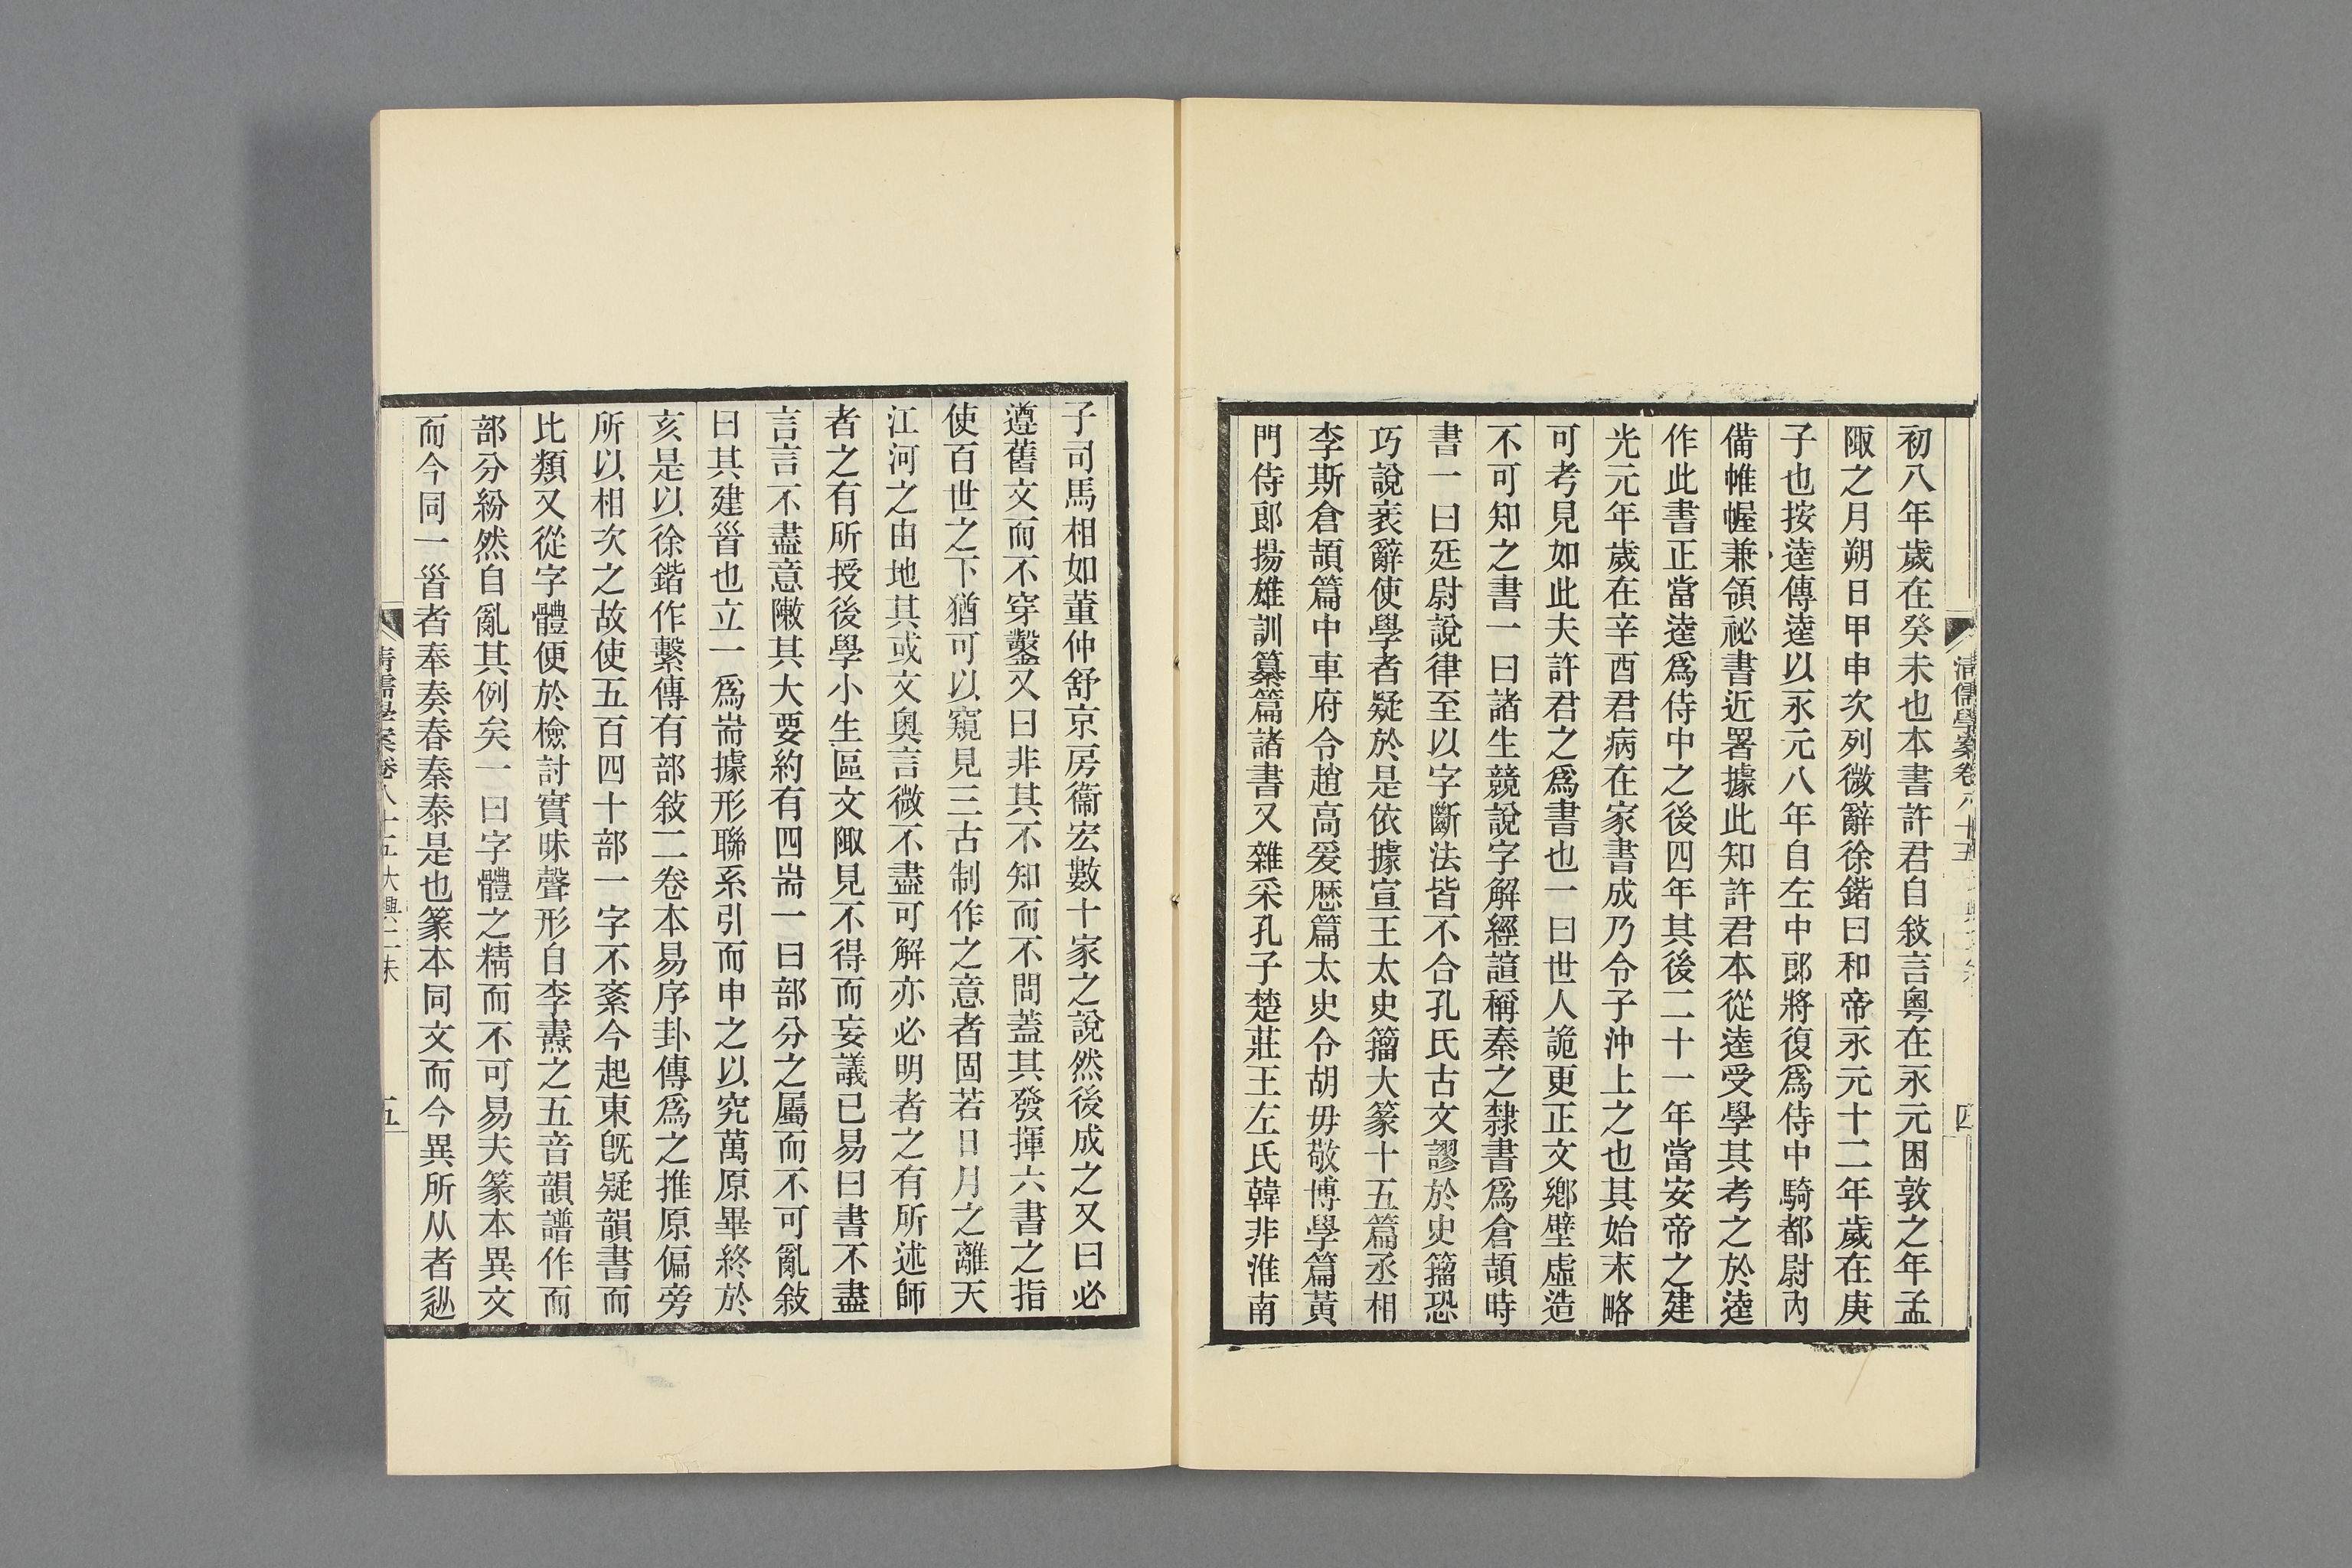 清儒學案卷八十五
四
初八年歲在癸未也本書許君自敍言粵在永元困敦之年孟
陬之月朔日甲申次列微辭徐鍇曰和帝永元十二年歲在庚
子也按逵傳逵以永元八年自左中郎將復爲侍中騎都尉內
備帷幄兼領祕書近署據此知許君本從逵受學其考之於逵
作此書正當逵爲侍中之後四年其後二十一年當安帝之建
光元年歲在辛酉君病在家書成乃令子沖上之也其始末略
可考見如此夫許君之爲書也一曰世人詭更正文鄉壁虛造
不可知之書一曰諸生競說字解經諠稱秦之隸書爲倉頡時
書一曰廷尉說律至以字斷法皆不合孔氏古文謬於史籀恐
巧說衺辭使學者疑於是依據宣王太史籀大篆十五篇丞相
李斯倉頡篇中車府令趙高爰厯篇太史令胡毋敬博學篇黃
門侍郎揚雄訓纂篇諸書又雜采孔子楚莊王左氏韓非淮南
子司馬相如董仲舒京房衞宏數十家之說然後成之又曰必
遵舊文而不穿鑿又曰非其不知而不問蓋其發揮六書之指
使百世之下猶可以窺見三古制作之意者固若日月之離天
江河之由地其或文奧言微不盡可解亦必明者之有所述師
者之有所授後學小生區文陬見不得而妄議已易曰書不盡
言言不盡意陳其大要約有四耑一曰部分之屬而不可亂敍
曰其建首也立一爲耑據形聯系引而申之以究萬原畢終於
亥是以徐鍇作繫傳有部敍二卷本易序卦傳爲之推原偏旁
所以相次之故使五百四十部一字不紊今起東旣疑韻書而
比類又從字體便於檢討實昧聲形自李燾之五音韻譜作而
部分紛然自亂其例矣一曰字體之精而不可易夫篆本異文
而今同一首者奉奏春秦泰是也篆本同文而今異所从者逊
清儒學案卷八十五大興二朱
五